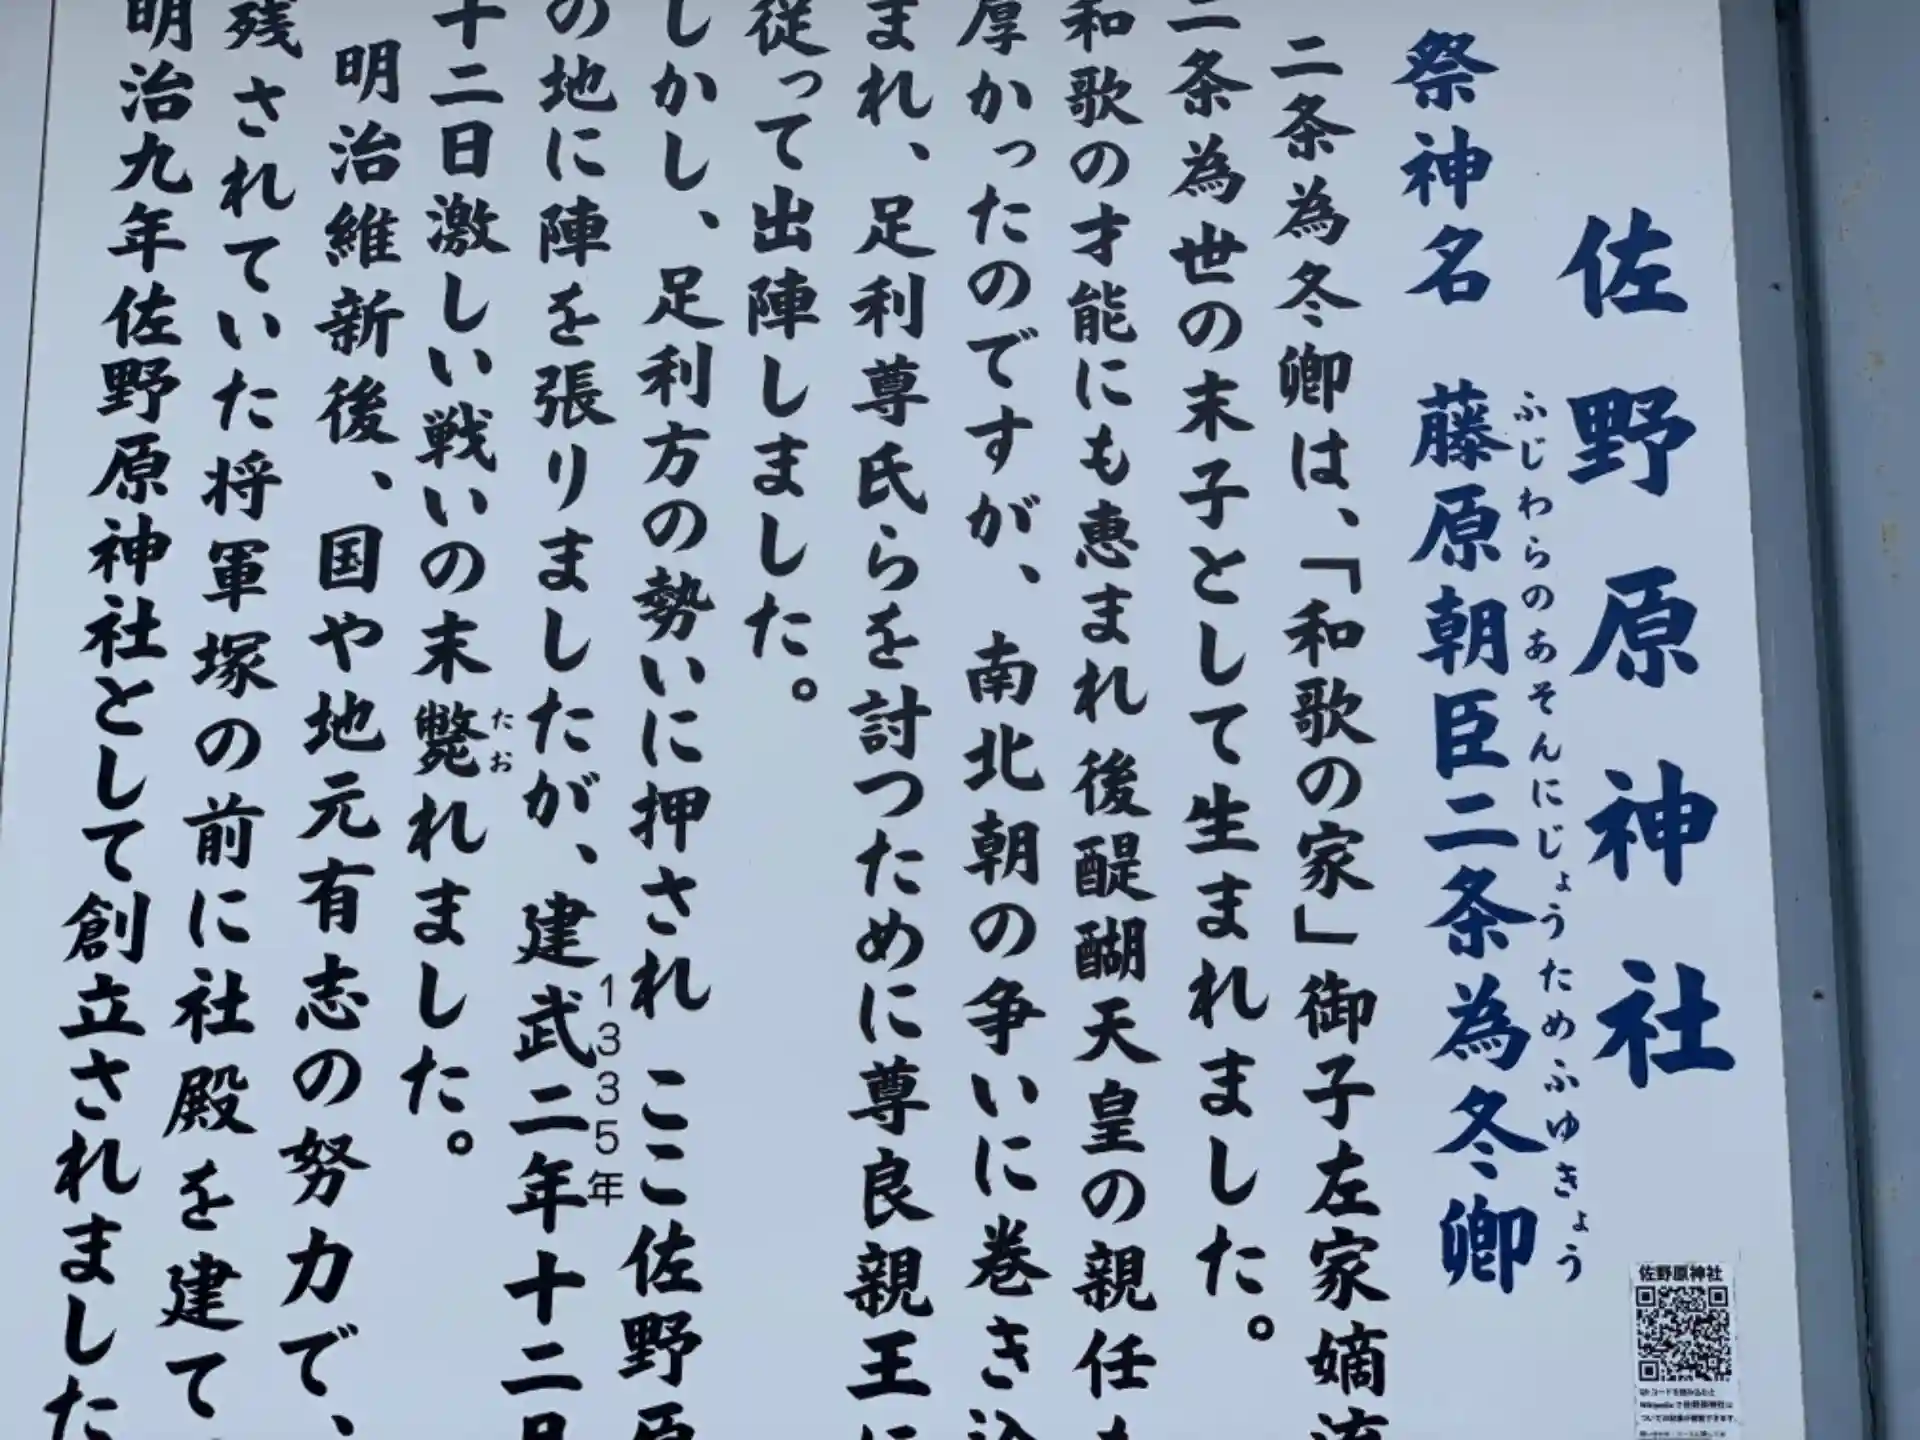 佐野原神社
祭神名 藤原朝臣二条為冬卿
ふじわらのあそんにじょうためふゆきょう
二条為冬卿は、「和歌の家」御子左家嫡流
二条為世の末子として生まれました。
和歌の才能にも恵まれ後醍醐天皇の親任も
厚かったのですが、南北朝の争いに巻き込
まれ、足利尊氏らを討つために尊良親王に
従って出陣しました。
しかし、足利方の勢いに押され ここ佐野原
の地に陣を張りましたが、建武二年十二月
1335年
十二日激しい戦いの末斃れました。
たお
明治維新後、国や地元有志の努力で、
残されていた将軍塚の前に社殿を建て
明治九年佐野原神社として創立されました
佐野原神社
QRコードを読み込むと
Wikipediaで佐野原神社に
ついての記事が閲覧できます。